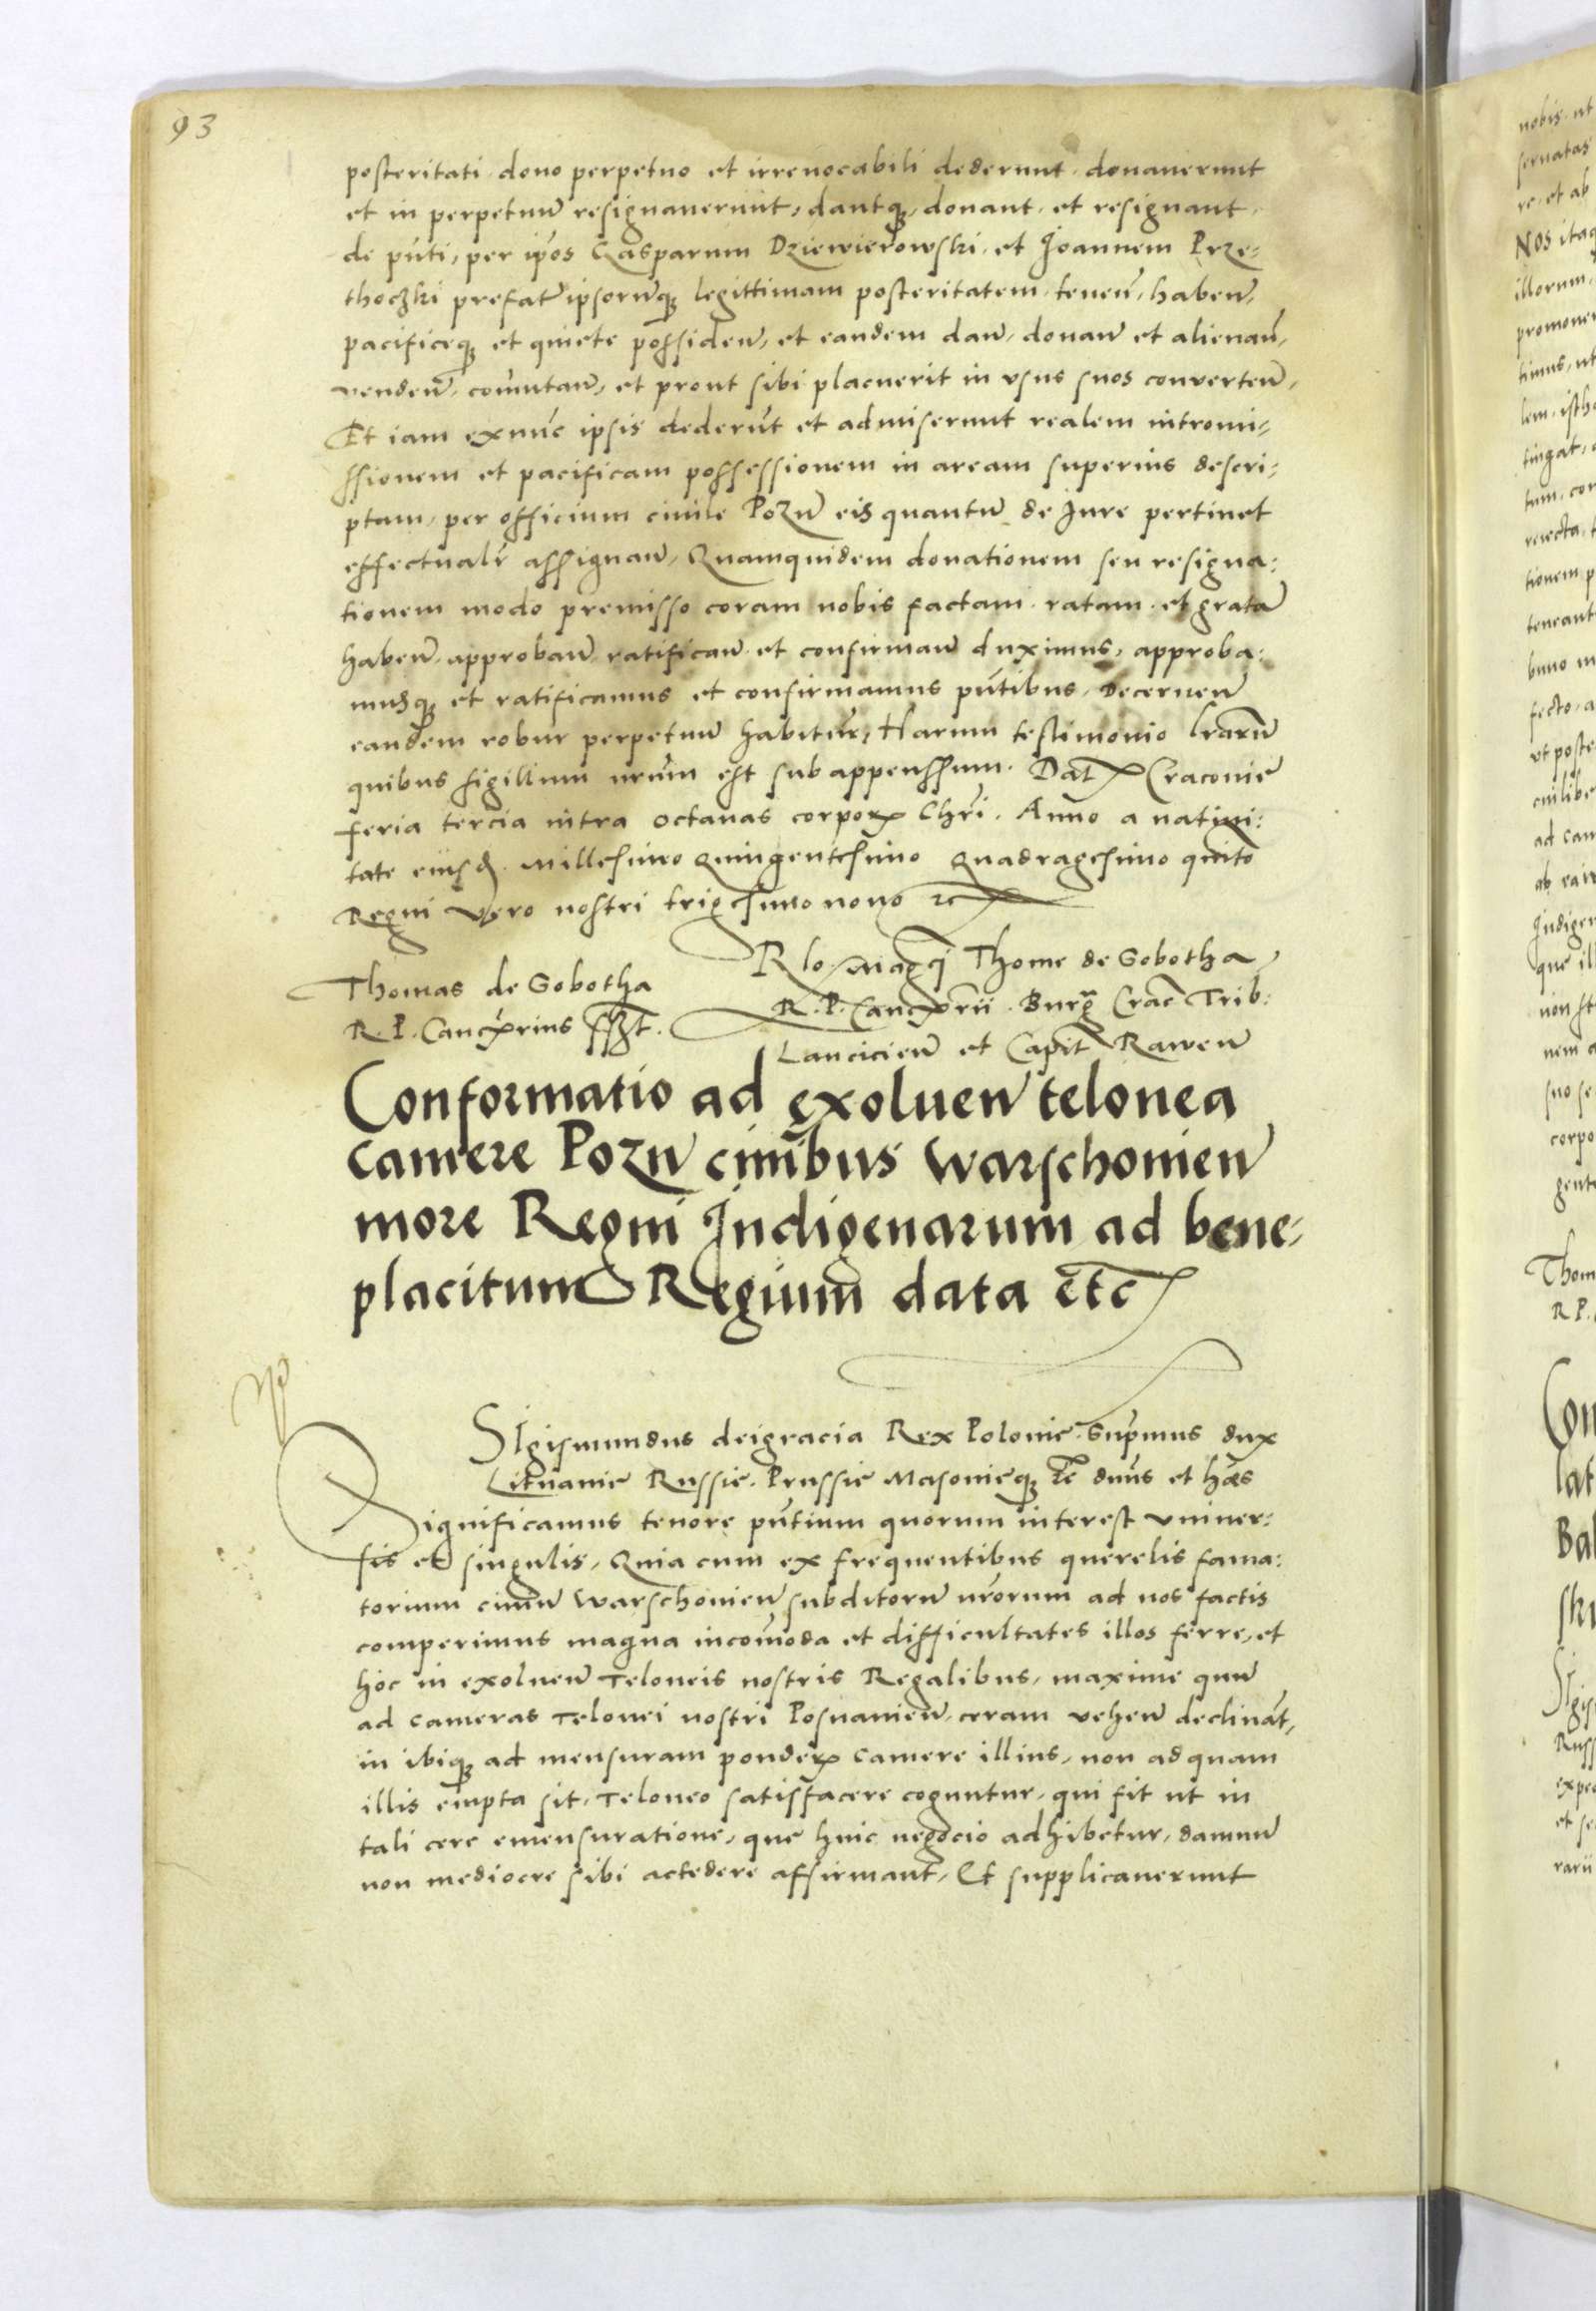 93
posteritati dono perpetuo et irreuocabili dederunt donauerunt
et in perpetuũ resignauerunt, dantq; donant et resignant
de pñti, per ip̃os Casparum Dziewierowski et Joannem Prze=
thoczki prefat̃ ipsorũq; legittimam posteritatem teneñ, habeñ,
pacificeq; et quiete possideñ, et eandem dañ, donañ et alienañ,
vendeñ, com̃utañ, et prout sibi placuerit in vsus suos conuerteñ,
Et iam exnũc ipsis dederũt et admiserunt realem intromi=
ssionem et pacificam possessionem in aream superius descri=
ptam, per officium ciuile Pozñ eis quantũ de Jure pertinet
effectualr̃ assignañ, Quamquidem donationem seu resigna:
tionem modo premisso coram nobis factam ratam et gratã
habeñ approbañ ratificañ et confirmañ duximus, approba:
musq; et ratificamus et confirmamus pñtibus, Decerneñ
eandem robur perpetuũ habitur̃, Harum testimonio lrarũ
quibus sigillum nrũm est subappenssum. Dat Cracouie
feria tercia intra octauas corporis Chrĩ. Anno a natiui:
tate eiusd̃. Millesimo Quingentesimo Quadragesimo quĩto
Regni vero nostri trigesimo nono ꝛc
Thomas de Sobotha
R. P. Cancx̃rius sszt.
Rlo Magci Thome de Sobotha
R. P. Cancx̃rii. Burg̃ Crac̃ Trib:
Lancicieñ et Capit̃ Raweñ
Conformatio ad exolueñ telonea
camere Pozñ ciuibus Warschouieñ
more Regni Indigenarum ad bene-
placitum Regium data etc
SIgismundus deigracia Rex Polonie Supr̃mus dux
Lituanie Russie. Prussie Masouieq; ꝛc̃ dñus et hæs
Significamus tenore pñtium quorum interest vniuer:
sis et singulis, Quia cum ex frequentibus querelis fama:
torium ciuiũ Warschouieñ subditorũ nr̃orum ad nos factis
comperimus magna incom̃oda et difficultates illos ferre, et
hoc in exolueñ Teloneis nostris Regalibus, maxime quũ
ad cameras Telonei nostri Posnanieñ ceram veheñ declinãt,
in ibiq; ad mensuram ponderis camere illius, non ad quam
illis empta sit, Teloneo satisfacere coguntur, qui fit ut in
tali cere emensuratione, que huic negocio adhibetur, damnũ
non mediocre sibi accedere affirmant, Et supplicauerunt